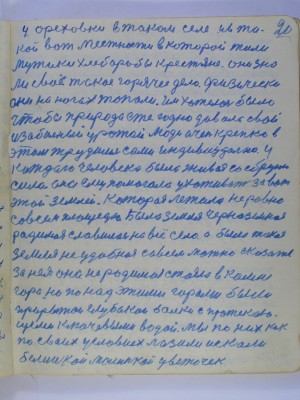 20
у ореховки в таком селе и в та-
кой вот местности в которой жили
мужики хлеборобы крестяне. они зно
ли своё такое горячее дело, физически
они на ногах топали. им хотелося было
чтобы природа ежегодно давала свой
изабыльный урожай люди очен крепко в
этом трудилися сами индивидуално. у
каждого человека была живая со
сила она ему помогала ухаживат за вот
этой землёй. Которая летала неровно
совсем площедю. Была земля чернозёмная
радимая славилася на всё село, а была такая
земля не удобная совсем можно сказат
за неё она неродимая стояла в камни
гора но по над этими горами были
глубокои балки с протекаю-
щими ключевыми водой. мы по них как
по своих условиях лазили искали
белинкой малинкой цветочек